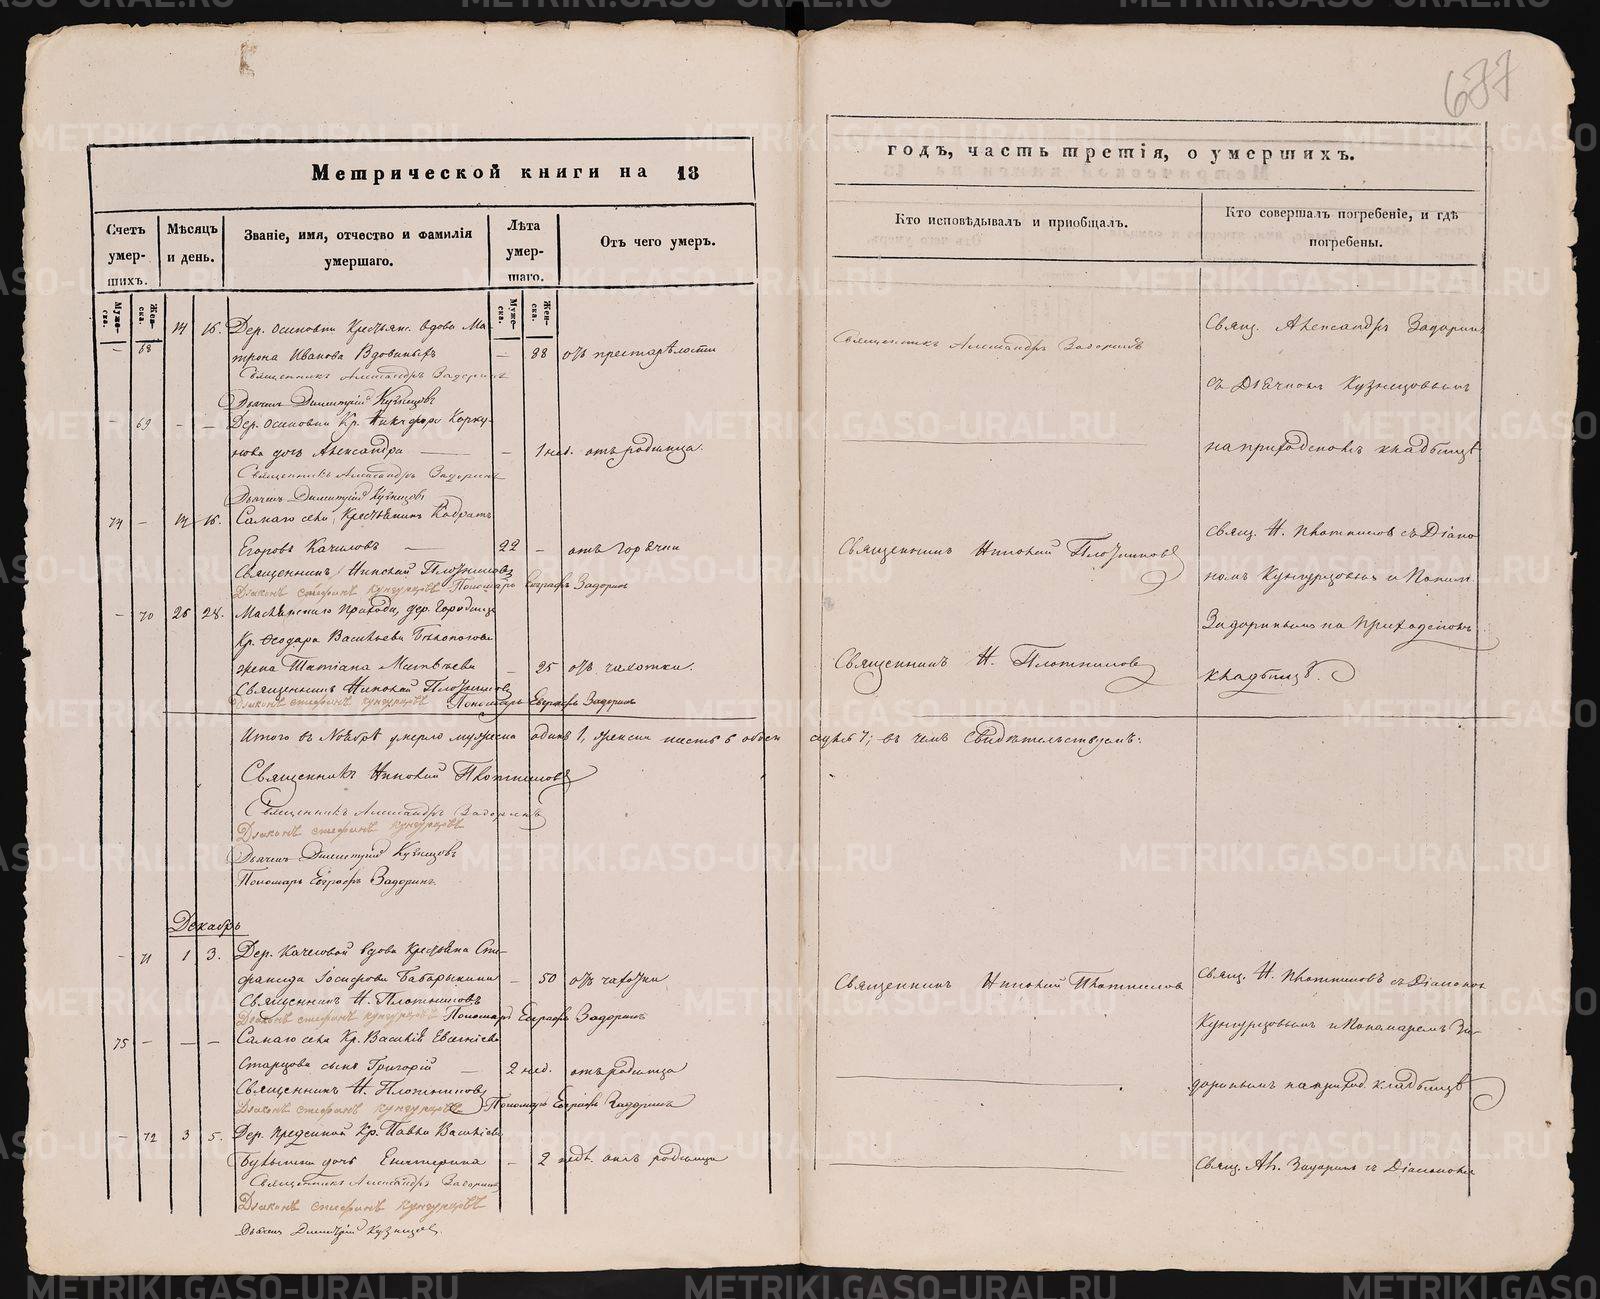 677
Метрической книги на 18
годъ, часть третія, о умершихъ.
Счетъ умер-шихъ.
Мѣсяцъ и день.
Званіе, имя, отчество и фамилія умершаго.
Лѣта умер-шаго.
Отъ чего умеръ.
Кто исповѣдывалъ и пріобщалъ.
Кто совершалъ погребеніе, и гдѣ погребены.
Муже-ска.
Жен-ска.
Муже-ска.
Жен-ска.
14 16. Дер. Осиновки Крестьян. вдова Ма-
68 трона Иванова Вдовиныхъ — 88 отъ престарѣлости
Священникъ Александръ Задоринъ
Дьячекъ Димитрій Кузнецовъ
Священникъ Александръ Задоринъ
Свящ. Александръ Задоринъ
съ Дьячкомъ Кузнецовымъ
на приходскомъ кладбищѣ
69 — — Дер. Осиновки Кр. Никифора Корку-
нова дочь Александра — 1 нед. отъ родимца.
Священникъ Александръ Задоринъ
Дьячекъ Димитрій Кузнецовъ
74 — 14 16. Самаго села Крестьянинъ Кодратъ
Егоровъ Качаловъ — 22 — отъ горячки
Священникъ Николай Плотниковъ
Діаконъ Стефанъ Кунгурцовъ Пономарь Евграфъ Задоринъ
Священникъ Николай Плотниковъ
Свящ. Н. Плотниковъ съ Діако-
номъ Кунгурцовымъ и Поном.
Задоринымъ на Приходскомъ
кладбищѣ.
— 70 26 28. Маслянскаго прихода, дер. Городища
Кр. Ѳеодора Васильева Бѣлоногова
жена Татіана Матвѣева — 25 отъ чахотки.
Священникъ Николай Плотниковъ
Діаконъ Стефанъ Кунгурцовъ Пономарь Евграфъ Задоринъ
Священникъ Н. Плотниковъ
Итого въ Ноябрѣ умерло мужеска одинъ 1, женска шесть 6 обоего
7; въ чемъ Свидѣтельствуемъ:
Священникъ Николай Плотниковъ
Священникъ Александръ Задоринъ
Діаконъ Стефанъ Кунгурцовъ
Дьячекъ Димитрій Кузнецовъ
Пономарь Евграфъ Задоринъ.
Декабрь
— 71 1 3. Дер. Качесовой вдова Крестьянка Сте-
фанида Іосифова Бабарыкина — 50 отъ чахотки
Священникъ Н. Плотниковъ
Діаконъ Стефанъ Кунгурцовъ Пономарь Евграфъ Задоринъ
Священникъ Николай Плотниковъ
Свящ. Н. Плотниковъ съ Діакономъ
Кунгурцовымъ и Пономаремъ За-
доринымъ на приход. кладбищѣ
75 — — — Самаго села Кр. Василія Евгеніева
Старцова сынъ Григорій — 2 нед. отъ родимца
Священникъ Н. Плотниковъ
Діаконъ Стефанъ Кунгурцовъ Пономарь Евграфъ Задоринъ
— 72 3 5. Дер. Кр. Павла Васильева
дочь Екатерина — 2 недѣ. отъ родимца
Священникъ Александръ Задоринъ
Діаконъ Стефанъ Кунгурцовъ
Дьячекъ Димитрій Кузнецовъ.
Свящ. Ал. Задоринъ съ Діакономъ
METRIKI.GASO-URAL.RU